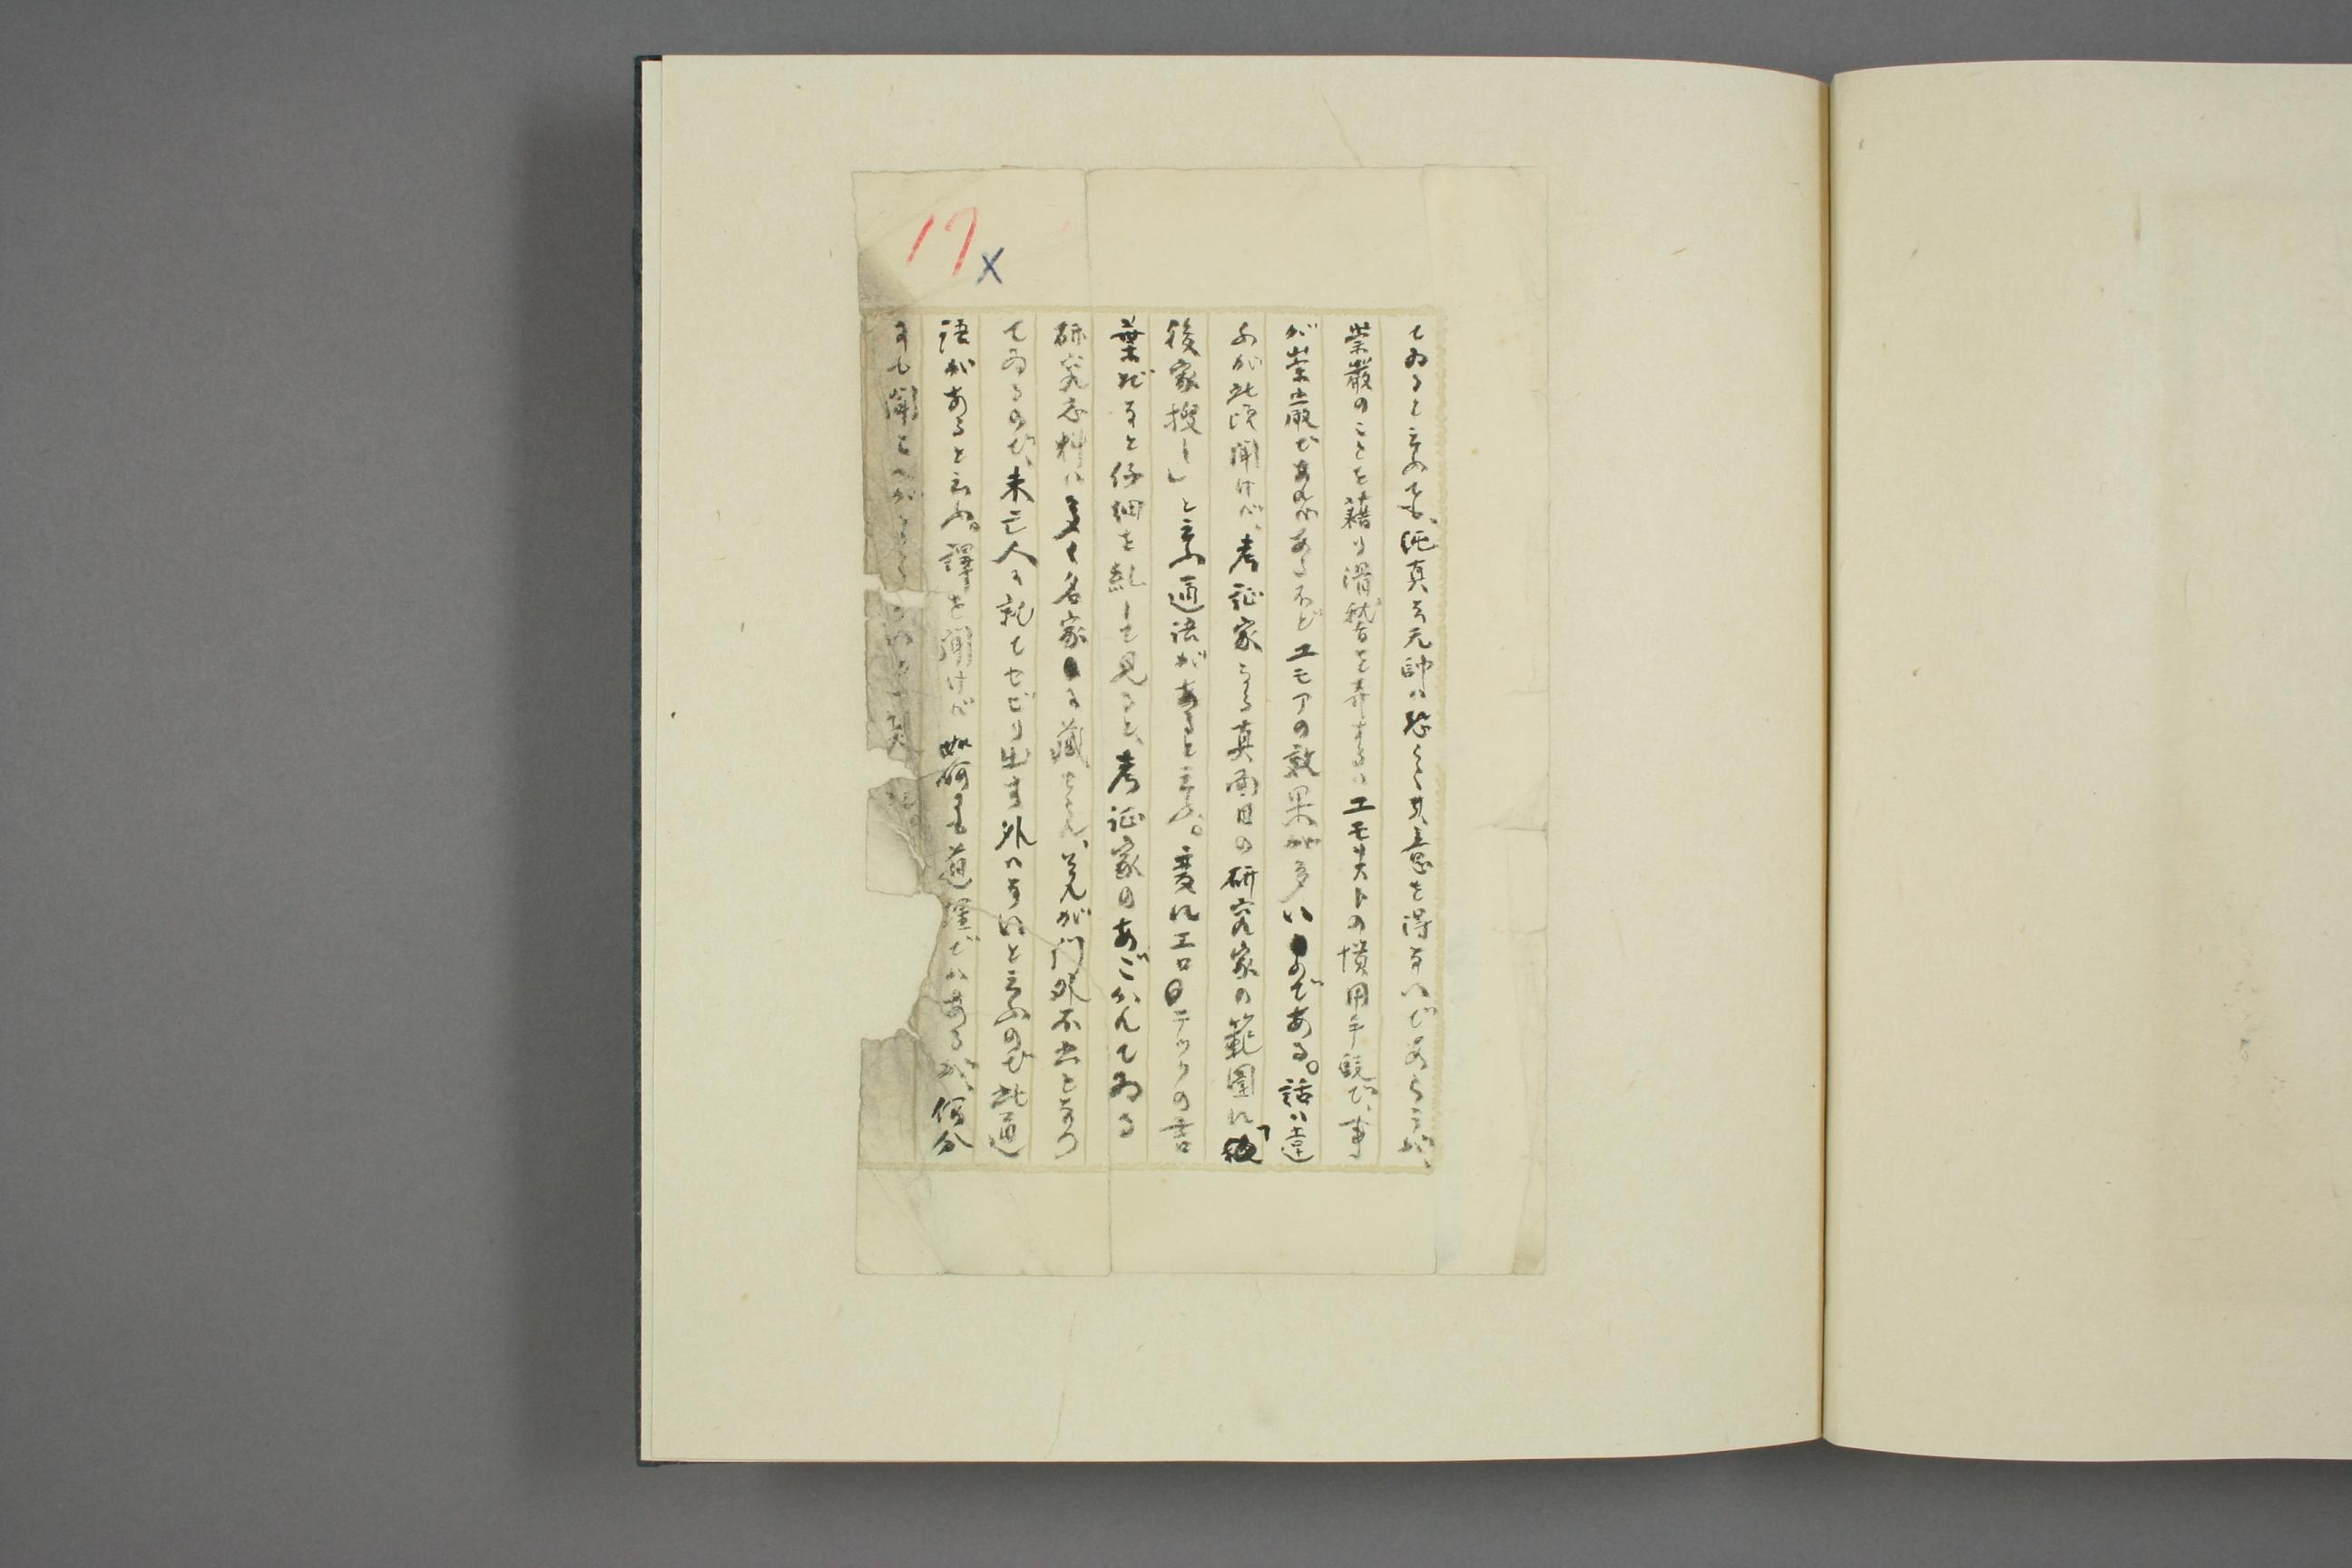 17
X
てゐると云ふても、純真な元帥は恐らく其意を得ないであらうが、
崇厳のことを藉り滑稽を弄するはユモオストの慣用手段で、事
が崇厳であればあるほどユモアの效果が多いのである。話は違
ふが此頃聞けば、考証家うち真面目の研究家の範囲に「
後家捜し」と云ふ通語があると云ふ。変にエロテックの言
葉だなと仔細を糺して見ると、考証家のあごがれてゐる
研究志料は多く名家に蔵せられ、それが門外不出となつ
てゐるので、未亡人に就てせびり出す外はないと云ふので此通
語があると云ふ。譯を聞けば如何にも道理ではあるが、何分
にも聞こへが